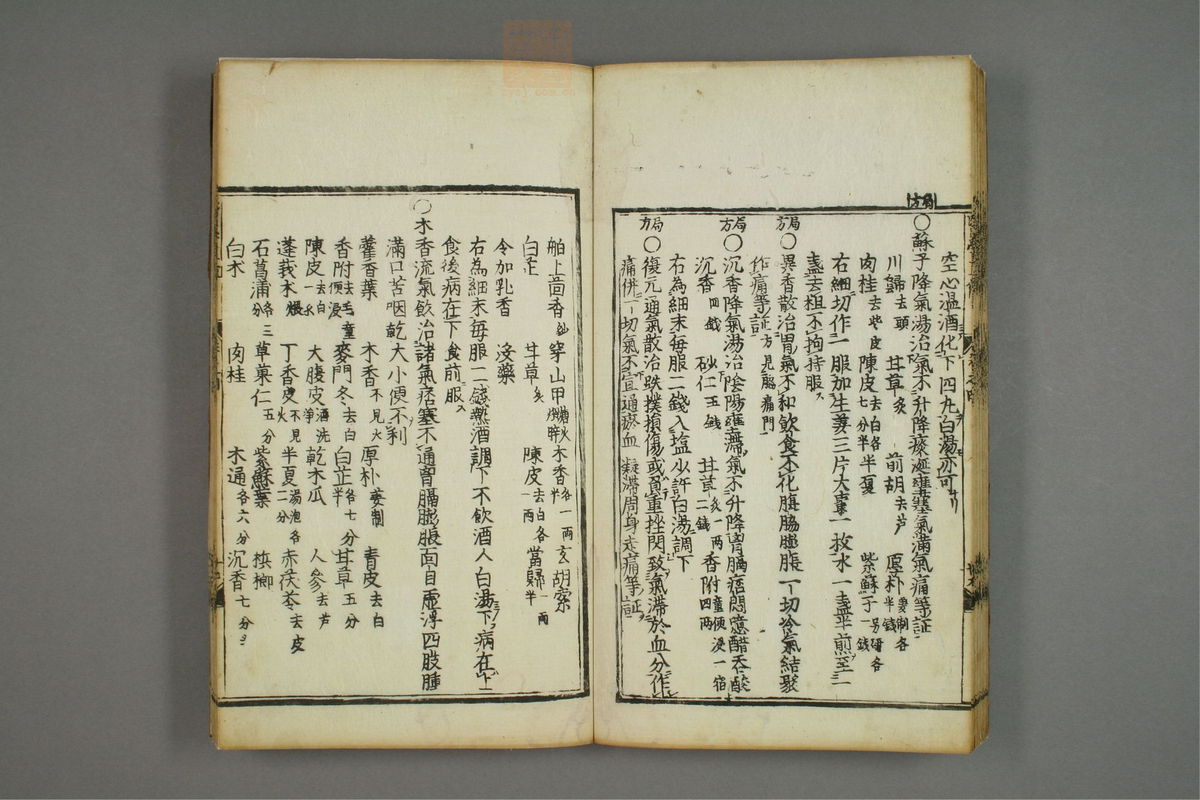 空心温酒化下四丸白湯亦可
局方
○蘇子降氣湯治氣不升降痰涎壅塞氣滿氣痛等証
川歸去頭 甘草炙 前胡去芦 厚朴姜制各半錢
肉桂去皮 陳皮去白各七分半 半夏 紫蘇子一錢另研各
右細切作一服加生姜三片大棗一枚水一盞半煎至一
盞去柤不拘持服
局方○異香散治胃氣不和飲食不化腹脇膨脹一切冷氣結聚
作痛等証方見腦痛門
局方○沉香降氣湯治陰陽壅滯氣不升降胷膈痞悶噫醋吞酸
沉香四錢 砂仁五錢 甘草二錢炙一兩 香附四兩童便浸一宿
右為細末每服二錢入塩少許白湯調下
局方○復元通氣散治跌撲損傷或負重挫閃致氣滯於血分作
痛併一切氣不宣通瘀血凝滯周身走痛等証
舶上茴香炒 穿山甲燒 木香各一兩半 玄胡索
白芷 甘草炙 陳皮去白各一兩 當歸一兩半
令加乳香 沒藥
右為細末每服二錢熱酒調下不飲酒人白湯下病在上
食後病在下食前服
○木香流氣飲治諸氣痞塞不通胷膈膨脹面目虛浮四肢腫
滿口苦咽乾大小便不利
藿香葉 木香不見火 厚朴姜制 青皮去白
香附去毛童便浸 麥門冬去白 白芷各七分半 甘草五分
陳皮去白一錢 大腹皮酒洗淨 乾木瓜 人參去芦
蓬莪朮煨 丁香皮不見火 半夏湯泡各二分 赤茯苓去皮
石菖蒲各三分 草菓仁五分 紫蘇葉 檳榔
白朮 肉桂 木通各六分 沉香七分